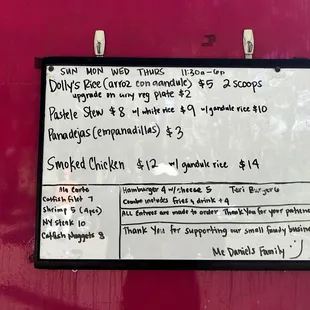 SUN MON WED THURS 11:30a-6p
Dolly's Rice (arroz con gandule) $5 2 scoops
upgrade on any reg plate $2
Pastele Stew $8 w/ white rice $9 w/ gandule rice $10
Panadejas (empanadillas) $3
Smoked Chicken $12 w/ gandule rice $14
Ala Carte
Catfish filet 7
Shrimp 5 (4pcs)
NY Steak 10
Catfish Nuggets 8
Hamburger 4 w/ cheese 5 Teri Burger 6
Combo includes fries & drink +4
All Entrees are made to order Thank you for your patience
Thank You for supporting our small family business
Mc Daniels Family